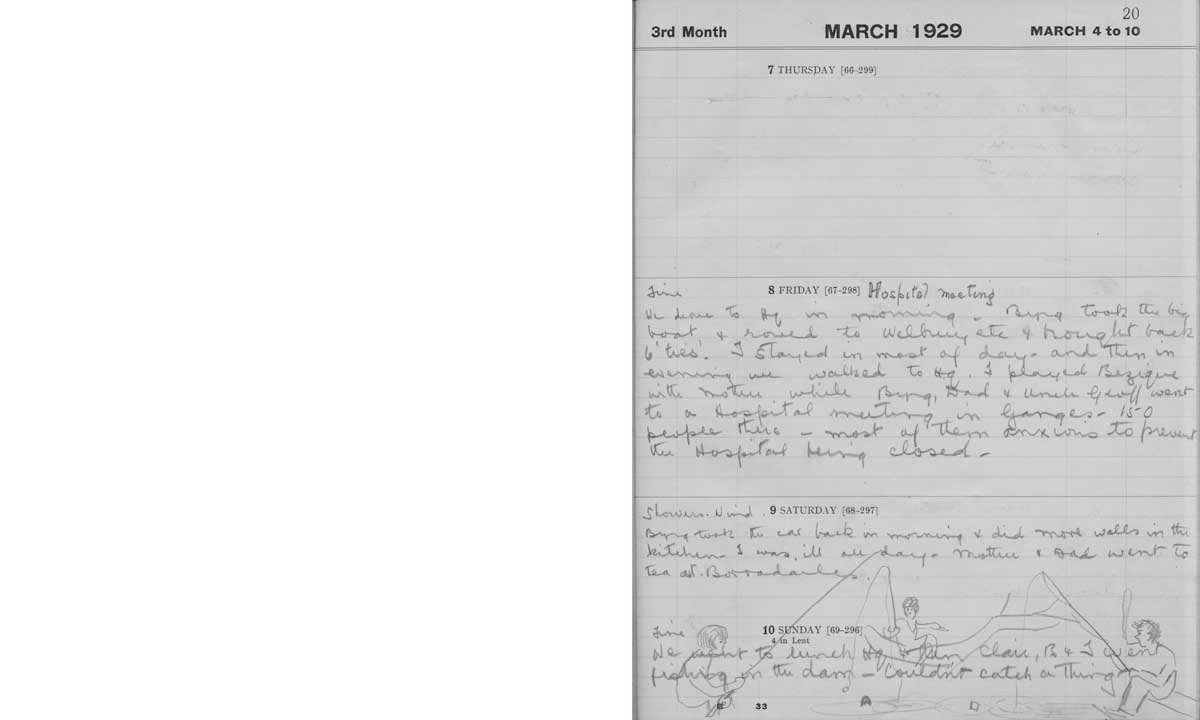 20
3rd Month MARCH 1929 MARCH 4 to 10
7 THURSDAY [66-299]
Fine 8 FRIDAY [67-298] Hospital meeting
We drove to Hq in morning - Byng took the big
boat, & rowed to Welbury etc & brought back
6 'ties'. I stayed in most of day - and then in
evening we walked to Hq. I played Bezique
with mother while Byng, Dad & Uncle Geoff went
to a Hospital meeting in Ganges - 150
people there - most of them anxious to prevent
the Hospital being closed -
Showers. Wind. 9 SATURDAY [68-297]
Byng took the car back in morning & did more walls in the
kitchen - I was ill all day - Mother & Dad went to
tea at Borradailes.
Fine 10 SUNDAY [69-296]
4 in Lent
We went to lunch Hq & then Clair, B & I went
fishing in the dam - Couldn't catch a thing
33